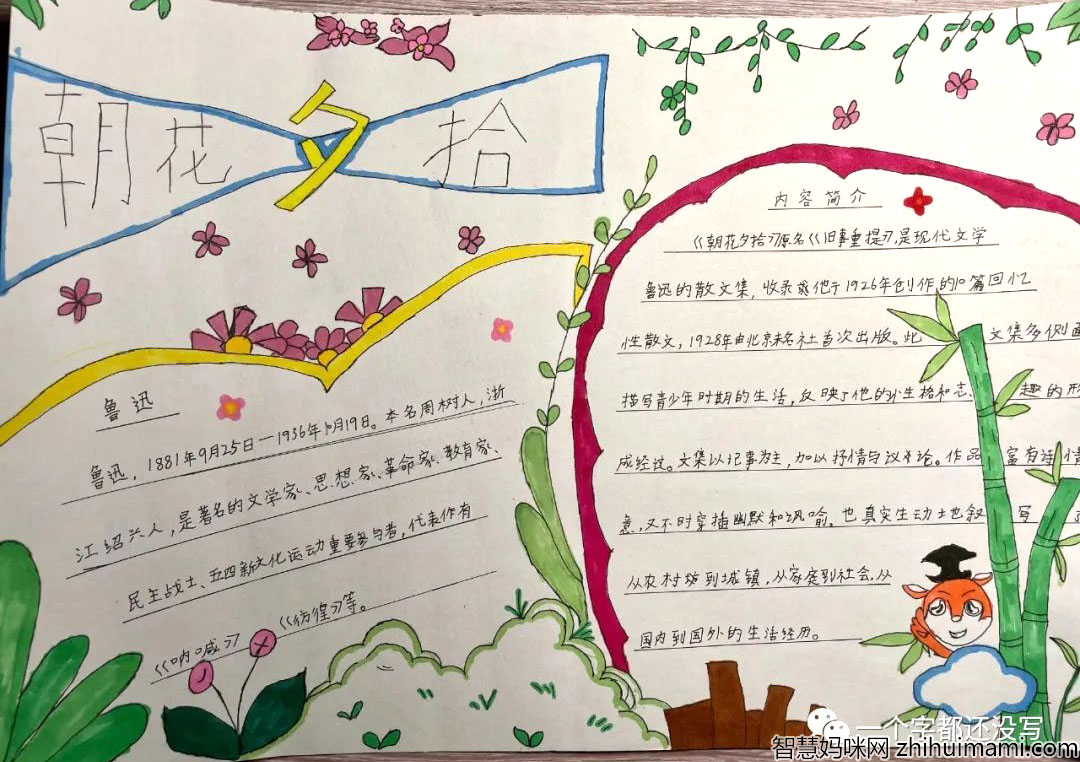 朝花夕拾
鲁迅
鲁迅，1881年9月25日—1936年10月19日。本名周树人，浙
江绍兴人，是著名的文学家、思想家、革命家、教育家、
民主战士、五四新文化运动重要参与者，代表作有
《呐喊》《彷徨》等。
内容简介
《朝花夕拾》原名《旧事重提》，是现代文学
鲁迅的散文集，收录他于1926年创作的10篇回忆
性散文，1928年由北京未名社首次出版。此文集多侧面
描写青少年时期的生活，反映了他的性格和志趣的形
成经过。文集以记事为主，加以抒情与议论。作品富有
意，又不时穿插幽默和讽喻。也真实生动地叙写
从农村到城镇，从家庭到社会，从
国内到国外的生活经历。
一个字都还没写
智慧妈咪网 zhihuimami.com